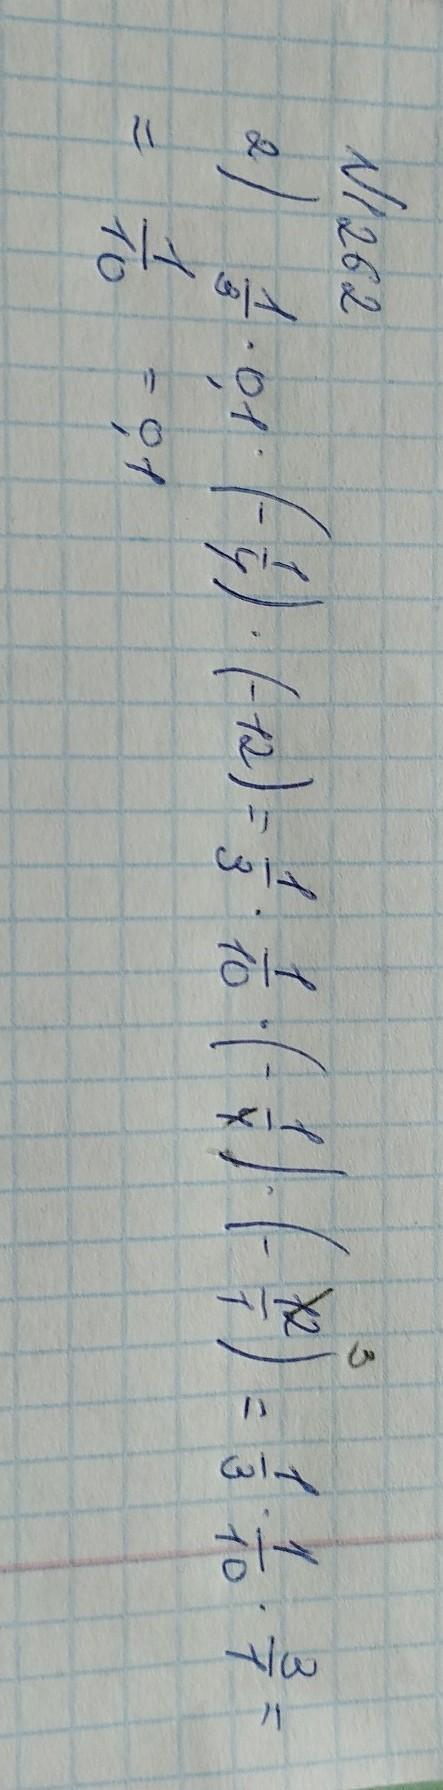 N1262
2) 1/3 · 0,1 · (-1/4) · (-12) = 1/3 · 1/10 · (-1/4) · (-12/1) 3 = 1/3 · 1/10 · 3/1 =
= 1/10 = 0,1